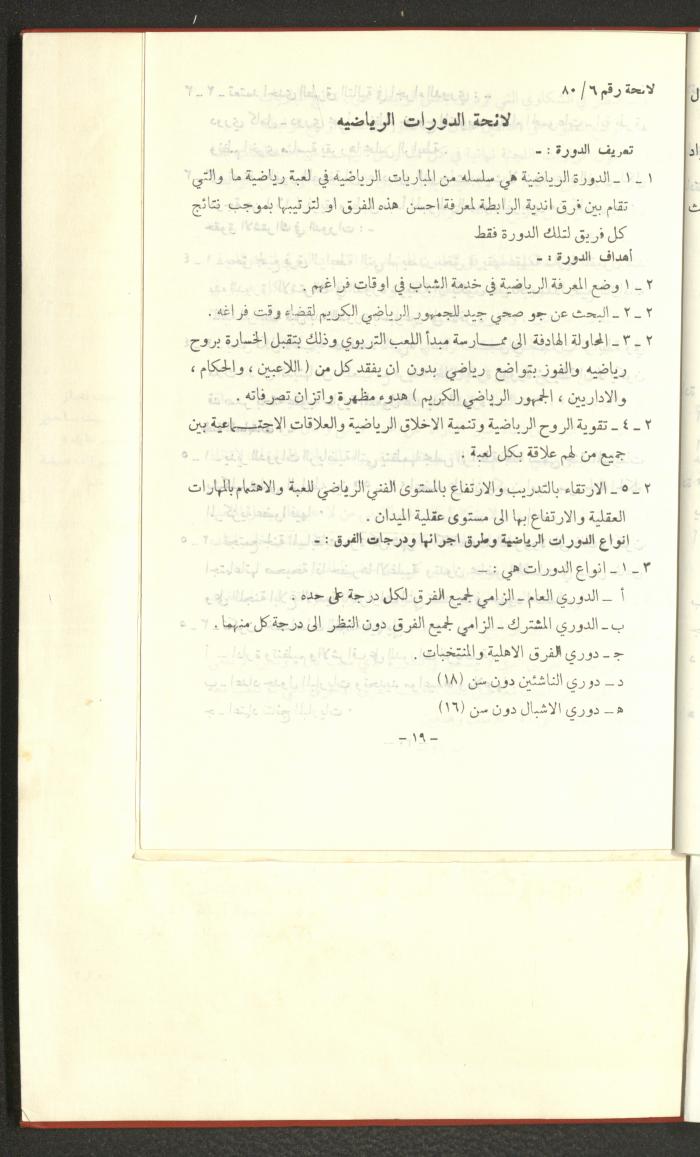 لائحة رقم ٦/ ٨٠
لائحة الدورات الرياضيه
تعريف الدورة : -
١ - ١ - الدورة الرياضية هي سلسله من المباريات الرياضيه في لعبة رياضية ما والتي
تقام بين فرق اندية الرابطة لمعرفة احسن هذه الفرق او لترتيبها بموجب نتائج
كل فريق لتلك الدورة فقط
أهداف الدورة : -
٢ - ١ وضع المعرفة الرياضية في خدمة الشباب في اوقات فراغهم .
٢ - ٢ - البحث عن جو صحي جيد للجمهور الرياضي الكريم لقضاء وقت فراغه .
٢ - ٣ - المحاولة الهادفة الى ممارسة مبدأ اللعب التربوي وذلك بتقبل الخسارة بروح
رياضيه والفوز بتواضع رياضي بدون ان يفقد كل من ( اللاعبين ، والحكام ،
والاداريين ، الجمهور الرياضي الكريم ) هدوء مظهرة واتزان تصرفاته .
٢ - ٤ - تقوية الروح الرياضية وتنمية الاخلاق الرياضية والعلاقات الاجتماعية بين
جميع من لهم علاقة بكل لعبة .
٢ - ٥ - الارتقاء بالتدريب والارتفاع بالمستوى الفني الرياضي للعبة والاهتمام بالمهارات
العقلية والارتفاع بها الى مستوى عقلية الميدان .
انواع الدورات الرياضية وطرق اجرائها ودرجات الفرق : -
٣ - ١ - انواع الدورات هي : -
أ - الدوري العام - الزامي لجميع الفرق لكل درجة على حده .
ب - الدوري المشترك - الزامي لجميع الفرق دون النظر الى درجة كل منهما .
جـ - دوري الفرق الاهلية والمنتخبات .
د - دوري الناشئين دون سن (١٨)
هـ - دوري الاشبال دون سن (١٦)
- ١٩ -